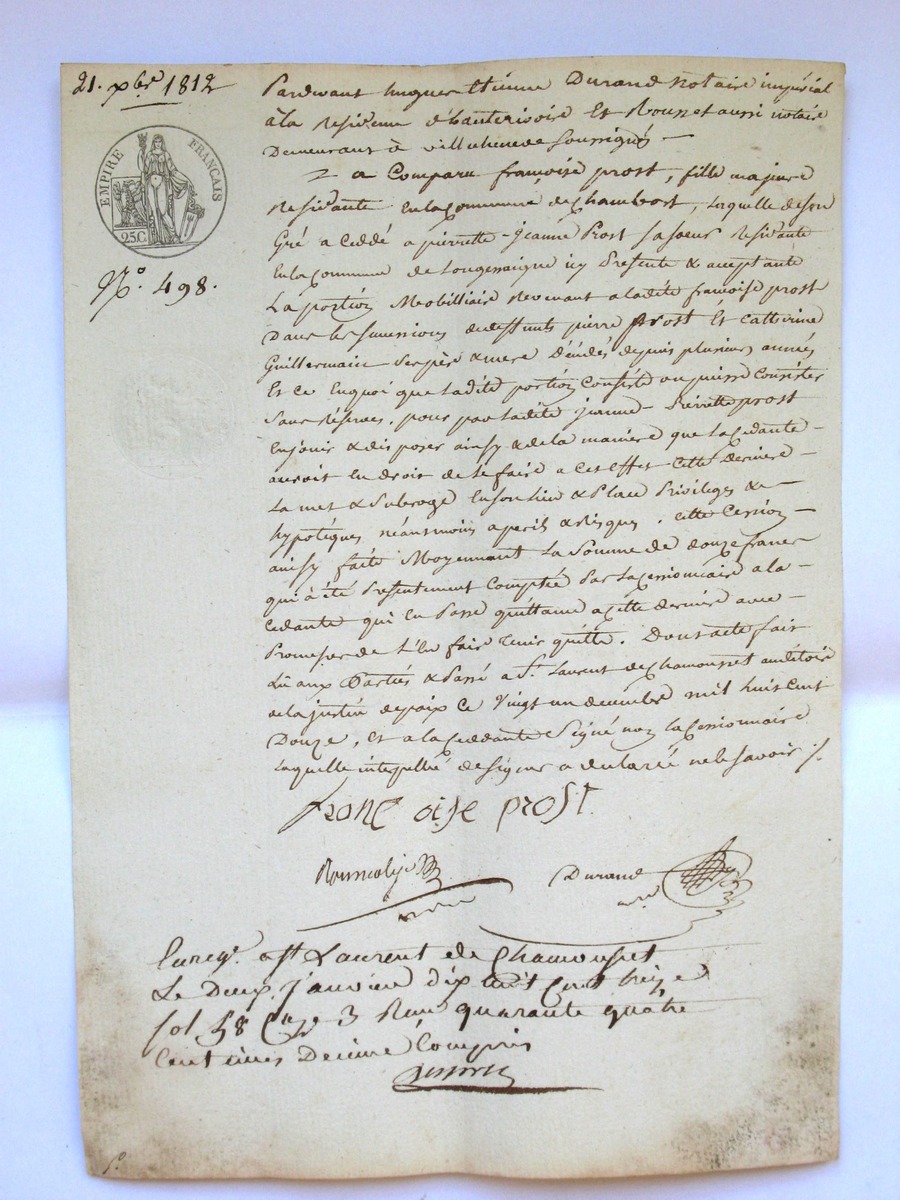 21. xbre 1812
EMPIRE FRANÇAIS
25C.
No. 498.
Pardevant hugues Etienne Durand Notaire impérial
à la Residence d'hauterivoire Et Nouns et aussi notaire
Demeurant à
a Comparu françoise prost, fille majeure
Residante en la Commune de Chambost, Laquelle de son
Gré a Ceddé a pierrette-jeanne Prost sa soeur Residante
En la Commune de Longessaigne icy Presente & acceptante
La portion Mobilliaire Revenant a ladite françoise prost
Dans les successions des deffunts pierre prost Et Catherine
Guillermain ses père & mere Décédés depuis plusieurs années
Et ce Enquoi que ladite portion Consiste ou puisse Consister
Sans Réserves, pour par ladite jeanne-Pierrette prost
En jouir & disposer ainsy & de la maniere que la Cedante
auroit En droit de le faire a Cet Effet Cette Derniere
La met & Subroge En son lieu & Place Privileges &
hypoteques néansmoins a perils & Risques, Cette Cession
ainsy faite Moyennant La Somme de douze francs
qui a été Presentement Comptée Par la Cessionnaire a la
Cedante qui En Passe quittance a Cette derniere avec
Promesse de l'En faire tenir quitte. Dont acte fait
Lû aux Parties & Passé a St. Laurent de Chamousset auditoire
de la justice de paix Ce Vingt un decembre mil huit Cent
Douze, Et a la Ceddante Signé non la Cessionnaire
Laquelle interpellée de Signer a declaré ne le Savoir ./.
franç oise prost
Durand
nre
Enregé. a st Laurent de Chamousset
Le Deux Janvier dix huit Cent treize
fol 58 Case 3 Recu quarante quatre
Centimes Decime Compris